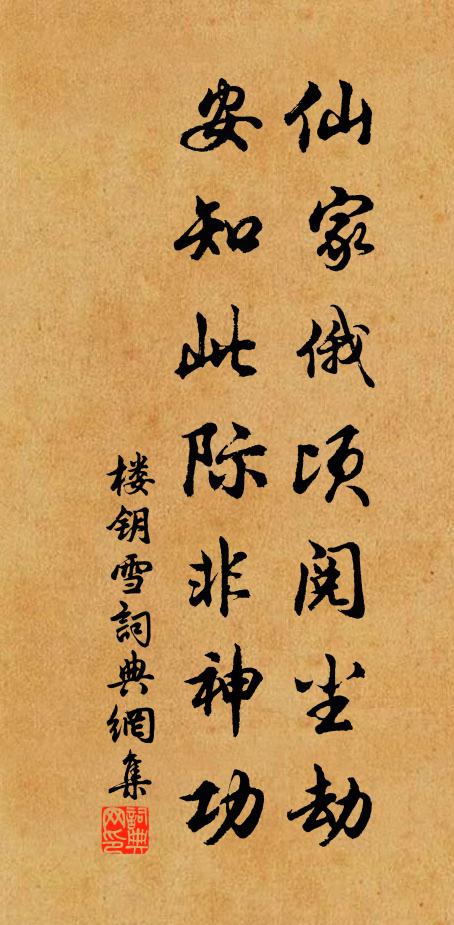 仙家俄顷阅尘劫
安知此际非神功
楼钥雪詞典網集
詞典网印